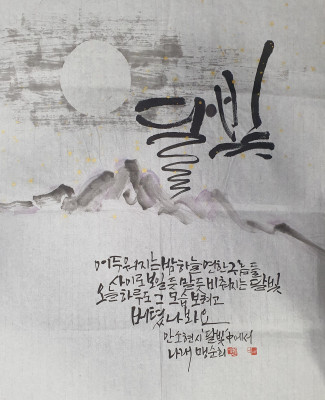 달빛
어두워지는 밤하늘 연한 구름들
사이로 보일듯 말듯 비추이는 달빛
오늘 하루도 그 모습 보려고
버텼나봐요
안소현시 '달빛'中에서
나래 맹순희